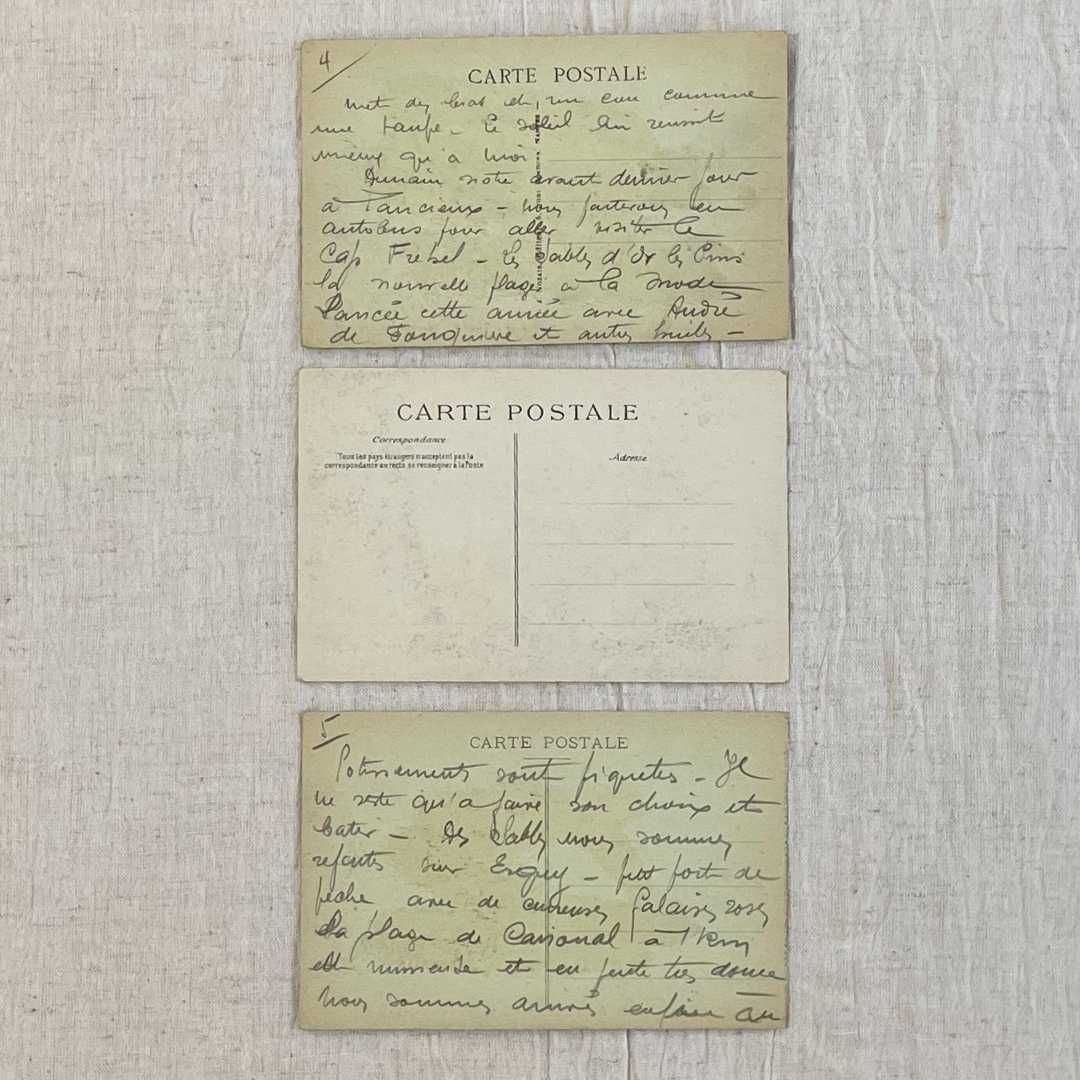 4
CARTE POSTALE
met des bras et, un cou comme
une taupe - Le soleil lui réussit
mieux qu'à moi
Demain notre avant dernier jour
à Lancieux - nous partirons en
autobus pour aller visiter le
Cap Frehel - Les Sables d'Or les Pins
la nouvelle plage à la mode
Lancée cette année avec André
de Fouquière et autres
CARTE POSTALE
Correspondance
Tous les pays étrangers n'acceptent pas la
correspondance au recto, se renseigner à la Poste
Adresse
5
CARTE POSTALE
sont piquetés - Il
ne reste qu'à faire son choix et
batir - Des Sables nous sommes
repartis sur Erquy - petit port de
pêche avec de curieuses falaises roses
La plage de Caroual à 1 km
est immense et en pente très douce
Nous sommes arrivés enfin au